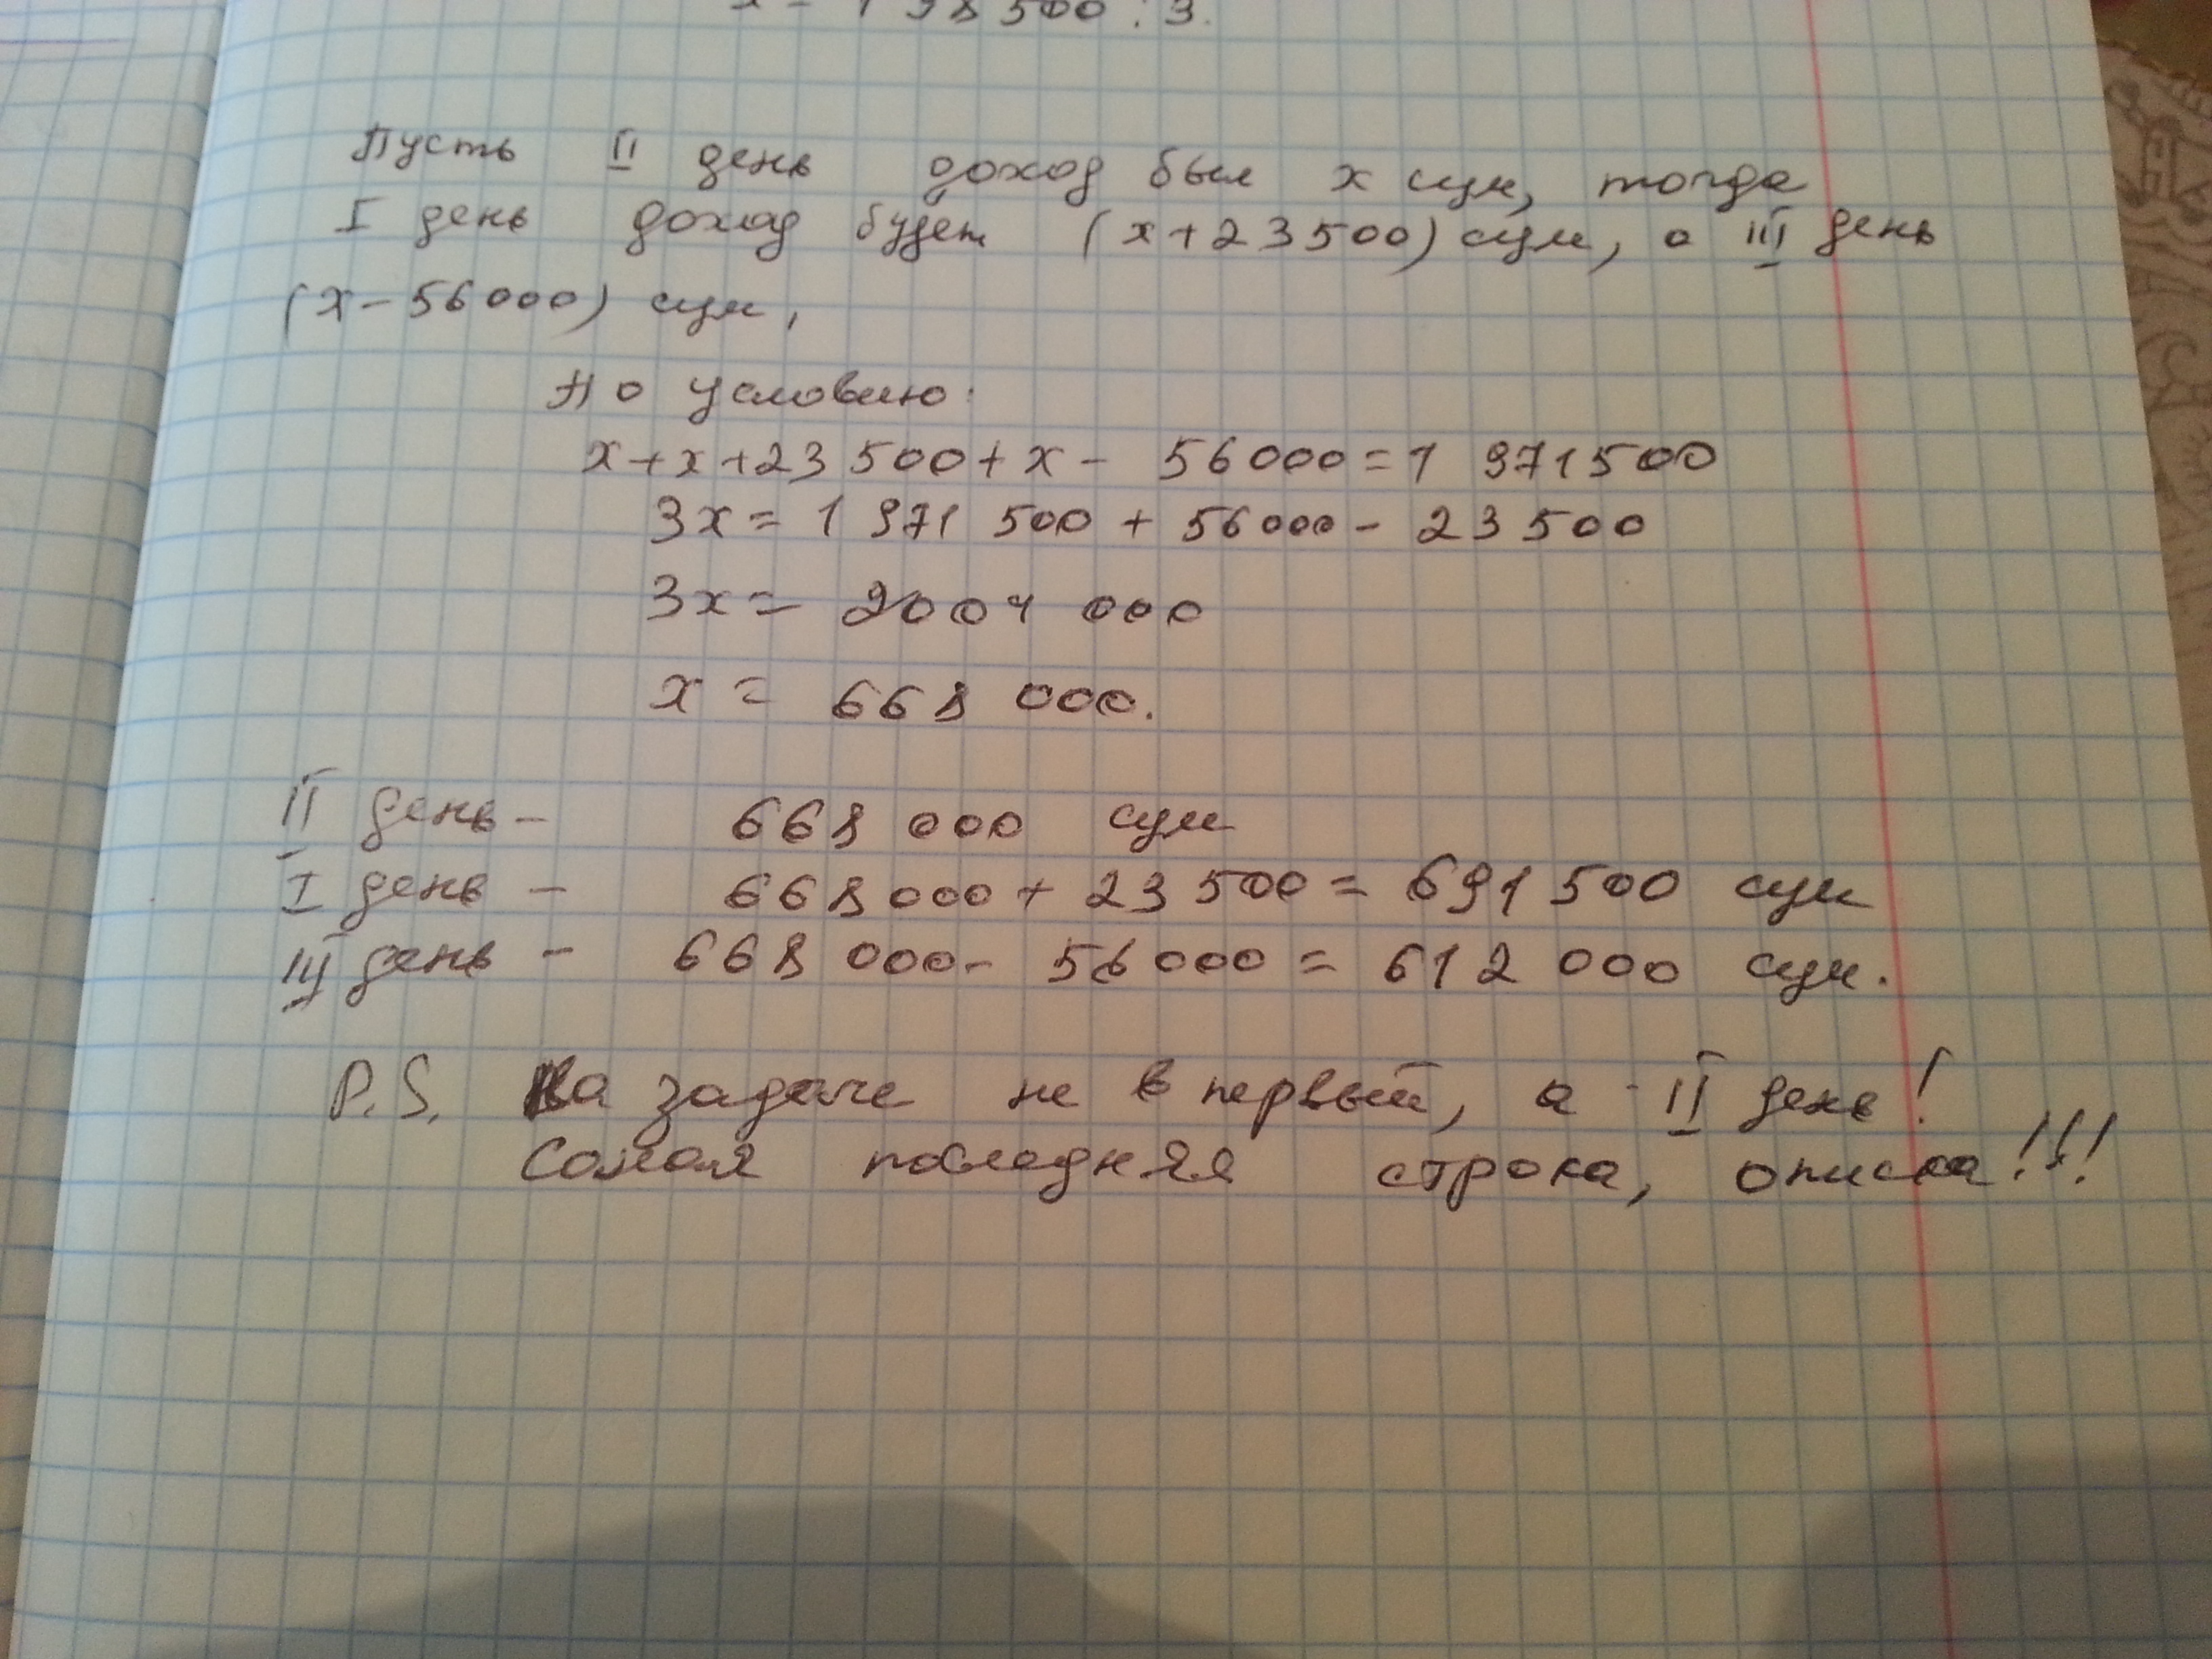 Пусть II день доход был x сум, тогда
I день доход будет (x+23500) сум, а III день
(x-56000) сум,
По условию:
x+x+23 500+x- 56000=1 971500
3x=1 971 500 + 56000- 23 500
3x= 2004 000
x = 668 000.
II день- 668 000 сум
I день - 668 000+ 23 500= 691 500 сум
III день - 668 000- 56 000 = 612 000 сум.
P.S. На задаче не в первый, а II день!
Самая последняя строка, описка!!!